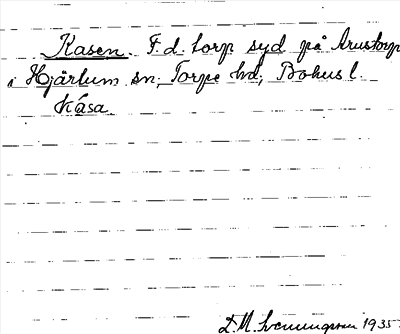 Kasen. F.d. torp syd på Arustorp
i Hjärtum sn; Torpe hd; Bohus l.
Kåsa.
D.M. Svenungsson 1935